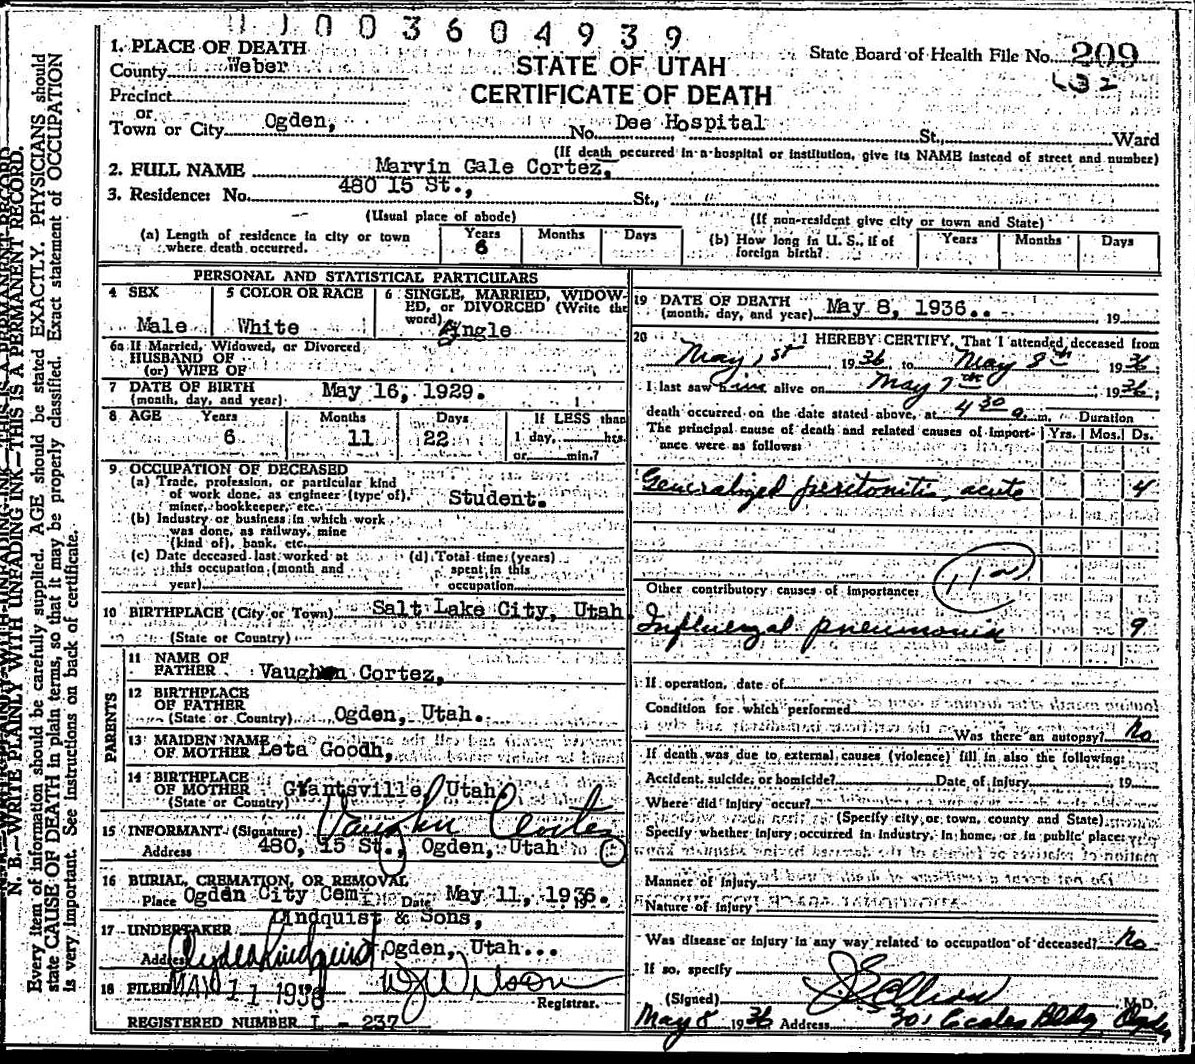 N. B.—WRITE PLAINLY WITH UNFADING INK—THIS IS A PERMANENT RECORD.
Every item of information should be carefully supplied. AGE should be stated EXACTLY. PHYSICIANS should
state CAUSE OF DEATH in plain terms, so that it may be properly classified. Exact statement of OCCUPATION
is very important. See instructions on back of certificate.
003604939
1. PLACE OF DEATH
County Weber
Precinct
or
Town or City Ogden,
STATE OF UTAH
CERTIFICATE OF DEATH
State Board of Health File No. 209
632
No. Dee Hospital St., Ward
(If death occurred in a hospital or institution, give its NAME instead of street and number)
2. FULL NAME Marvin Gale Cortez,
3. Residence: No. 480 15 St., St.,
(Usual place of abode) (If non-resident give city or town and State)
(a) Length of residence in city or town where death occurred. Years 6 Months Days
(b) How long in U. S., if of foreign birth? Years Months Days
PERSONAL AND STATISTICAL PARTICULARS
4 SEX Male
5 COLOR OR RACE White
6 SINGLE, MARRIED, WIDOWED, or DIVORCED (Write the word) Single
6a If Married, Widowed, or Divorced
HUSBAND OF
(or) WIFE OF
7 DATE OF BIRTH
(month, day, and year) May 16, 1929.
8 AGE Years 6 Months 11 Days 22 If LESS than 1 day, hrs. or min.?
9 OCCUPATION OF DECEASED
(a) Trade, profession, or particular kind
of work done, as engineer (type of),
miner, bookkeeper, etc. Student.
(b) Industry or business in which work
was done, as railway, mine
(kind of), bank, etc.
(c) Date deceased last worked at this occupation (month and year)
(d) Total time (years) spent in this occupation
10 BIRTHPLACE (City or Town) Salt Lake City, Utah
(State or Country)
PARENTS
11 NAME OF
FATHER Vaughn Cortez,
12 BIRTHPLACE
OF FATHER
(State or Country) Ogden, Utah.
13 MAIDEN NAME
OF MOTHER Leta Goodh,
14 BIRTHPLACE
OF MOTHER Grantsville, Utah
(State or Country)
15 INFORMANT (Signature) Vaughn Cortez
Address 480, 15 St., Ogden, Utah
16 BURIAL, CREMATION, OR REMOVAL
Place Ogden City Cem Date May 11, 1936.
17 UNDERTAKER Lindquist & Sons,
Address Ogden, Utah...
18 FILED MAY 11 1936 W J Wilson
Registrar.
REGISTERED NUMBER L - 237
19 DATE OF DEATH
(month, day, and year) May 8, 1936.. 19
20 I HEREBY CERTIFY, That I attended deceased from
May 1st 1936 to May 8th 1936
I last saw him alive on May 7th 1936;
death occurred on the date stated above, at 4 30 a. m. Duration
The principal cause of death and related causes of importance were as follows: Yrs. Mos. Ds.
Generalized peritonitis, acute 4
11a
Other contributory causes of importance:
Influenzal pneumonia 9
If operation, date of
Condition for which performed
Was there an autopsy? No
If death was due to external causes (violence) fill in also the following:
Accident, suicide, or homicide? Date of injury 19
Where did injury occur?
(Specify city or town, county and State)
Specify whether injury occurred in industry, in home, or in public place:
Manner of Injury
Nature of Injury
Was disease or injury in any way related to occupation of deceased? No
If so, specify
(Signed) M.D.
May 8 1936 Address 301 Eccles Bldg, Ogden